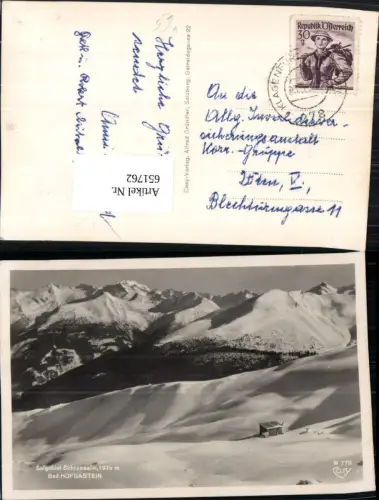 Herzliche Grüße
sendet
Artikel Nr.
651762
Cosy-Verlag, Alfred Gründler, Salzburg, Getreidegasse 22
Republik Österreich
30
KLAGENFURT
An die
Allg. Invaliden-
sicherungsanstalt
Korr.-Gruppe
Wien, V.,
Blechturmgasse 11
Skigebiet Schlossalm, 1974 m.
Bad HOFGASTEIN
B 775
Cosy